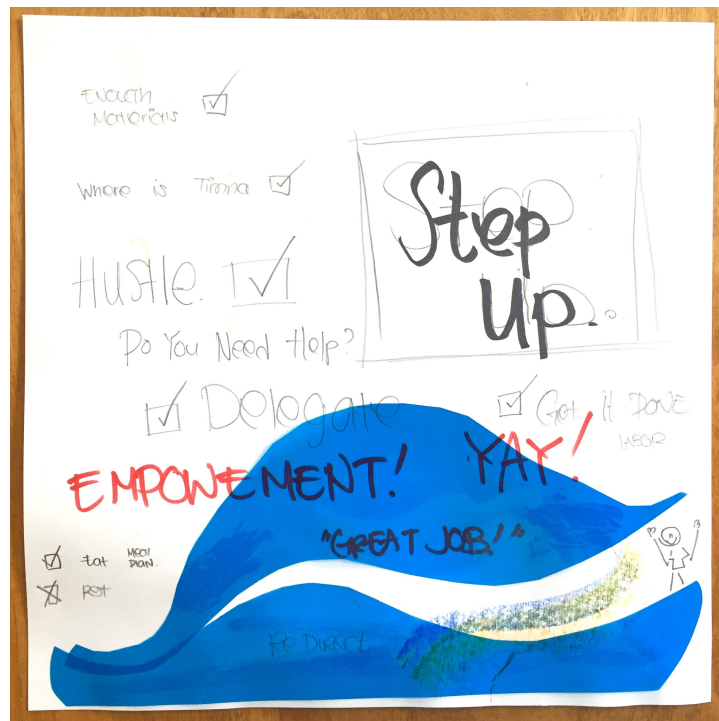 Enough
Materials
Where is Timma
Step
Up.
Hustle.
Do You Need Help?
Delegate
Get it DONE
LABOR
EMPOWEMENT! YAY!
"GREAT JOB!"
Eat MEAL
PLAN.
Rest
Re DIRECT